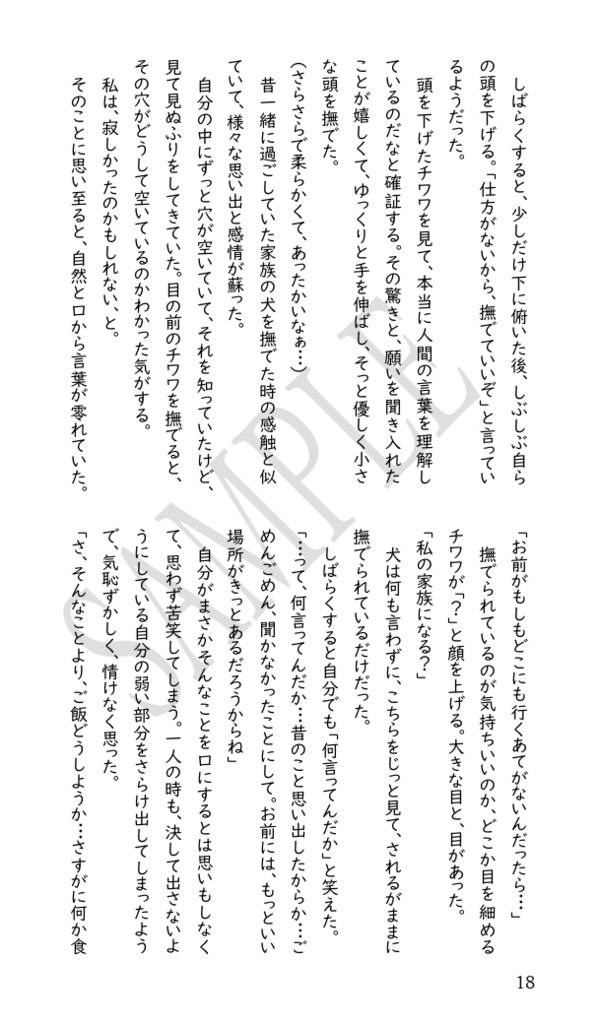 しばらくすると、少しだけ下に俯いた後、しぶしぶ自ら
の頭を下げる。「仕方がないから、撫でていいぞ」と言ってい
るようだった。
頭を下げたチワワを見て、本当に人間の言葉を理解し
ているのだなと確証する。その驚きと、願いを聞き入れた
ことが嬉しくて、ゆっくりと手を伸ばし、そっと優しく小さ
な頭を撫でた。
(さらさらで柔らかくて、あったかいなぁ…)
昔一緒に過ごしていた家族の犬を撫でた時の感触と似
ていて、様々な思い出と感情が蘇った。
自分の中にずっと穴が空いていて、それを知っていたけど、
見て見ぬふりをしてきていた。目の前のチワワを撫でると、
その穴がどうして空いているのかわかった気がする。
私は、寂しかったのかもしれない、と。
そのことに思い至ると、自然と口から言葉が零れていた。
「お前がもしもどこにも行くあてがないんだったら…」
撫でられているのが気持ちいいのか、どこか目を細める
チワワが「?」と顔を上げる。大きな目と、目があった。
「私の家族になる?」
犬は何も言わずに、こちらをじっと見て、されるがままに
撫でられているだけだった。
しばらくすると自分でも「何言ってんだか」と笑えた。
「…って、何言ってんだか…昔のこと思い出したからか…ご
めんごめん、聞かなかったことにして。お前には、もっといい
場所がきっとあるだろうからね」
自分がまさかそんなことを口にするとは思いもしなく
て、思わず苦笑してしまう。一人の時も、決して出さないよ
うにしている自分の弱い部分をさらけ出してしまったよう
で、気恥ずかしく、情けなく思った。
「さ、そんなことより、ご飯どうしようか…さすがに何か食
18
SAMPLE